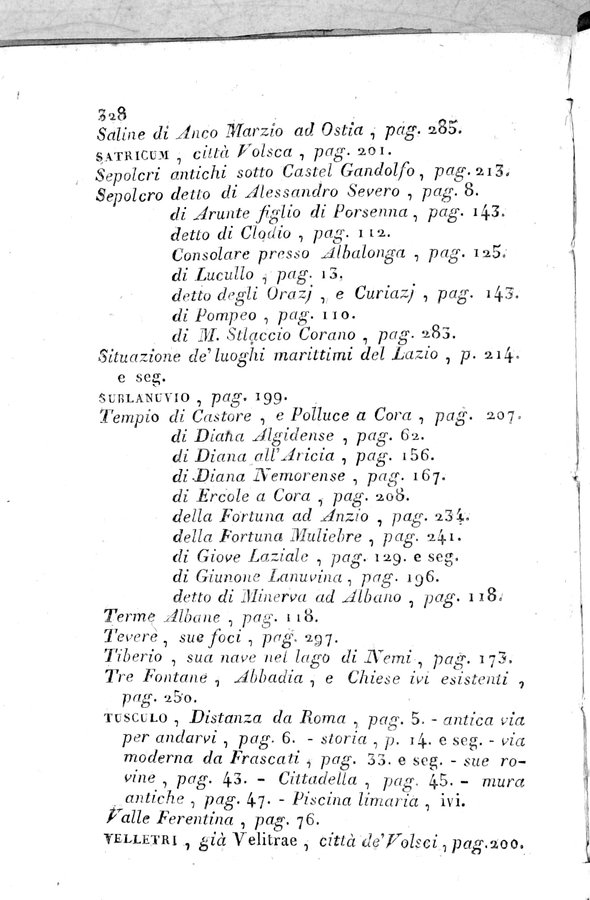 328
Saline di Anco Marzio ad Ostia , pag. 285.
SATRICUM , città Volsca , pag. 201.
Sepolcri antichi sotto Castel Gandolfo, pag. 213.
Sepolcro detto di Alessandro Severo , pag. 8.
di Arunte figlio di Porsenna , pag. 143.
detto di Clodio , pag. 112.
Consolare presso Albalonga , pag. 125.
di Lucullo , pag. 13.
detto degli Orazj , e Curiazj , pag. 143.
di Pompeo , pag. 110.
di M. Stlaccio Corano , pag. 283.
Situazione de' luoghi marittimi del Lazio , p. 214.
e seg.
SUBLANUVIO , pag. 199.
Tempio di Castore , e Polluce a Cora , pag. 207.
di Diana Algidense , pag. 62.
di Diana all'Aricia , pag. 156.
di Diana Nemorense , pag. 167.
di Ercole a Cora , pag. 208.
della Fortuna ad Anzio , pag. 234.
della Fortuna Muliebre , pag. 241.
di Giove Laziale , pag. 129. e seg.
di Giunone Lanuvina , pag. 196.
detto di Minerva ad Albano , pag. 118.
Terme Albane , pag. 118.
Tevere , sue foci , pag. 297.
Tiberio , sua nave nel lago di Nemi , pag. 173.
Tre Fontane , Abbadia , e Chiese ivi esistenti ,
pag. 250.
TUSCULO , Distanza da Roma , pag. 5. - antica via
per andarvi , pag. 6. - storia , p. 14. e seg. - via
moderna da Frascati , pag. 33. e seg. - sue ro-
vine , pag. 43. - Cittadella , pag. 45. - mura
antiche , pag. 47. - Piscina limaria , ivi.
Valle Ferentina , pag. 76.
VELLETRI , già Velitrae , città de' Volsci , pag. 200.